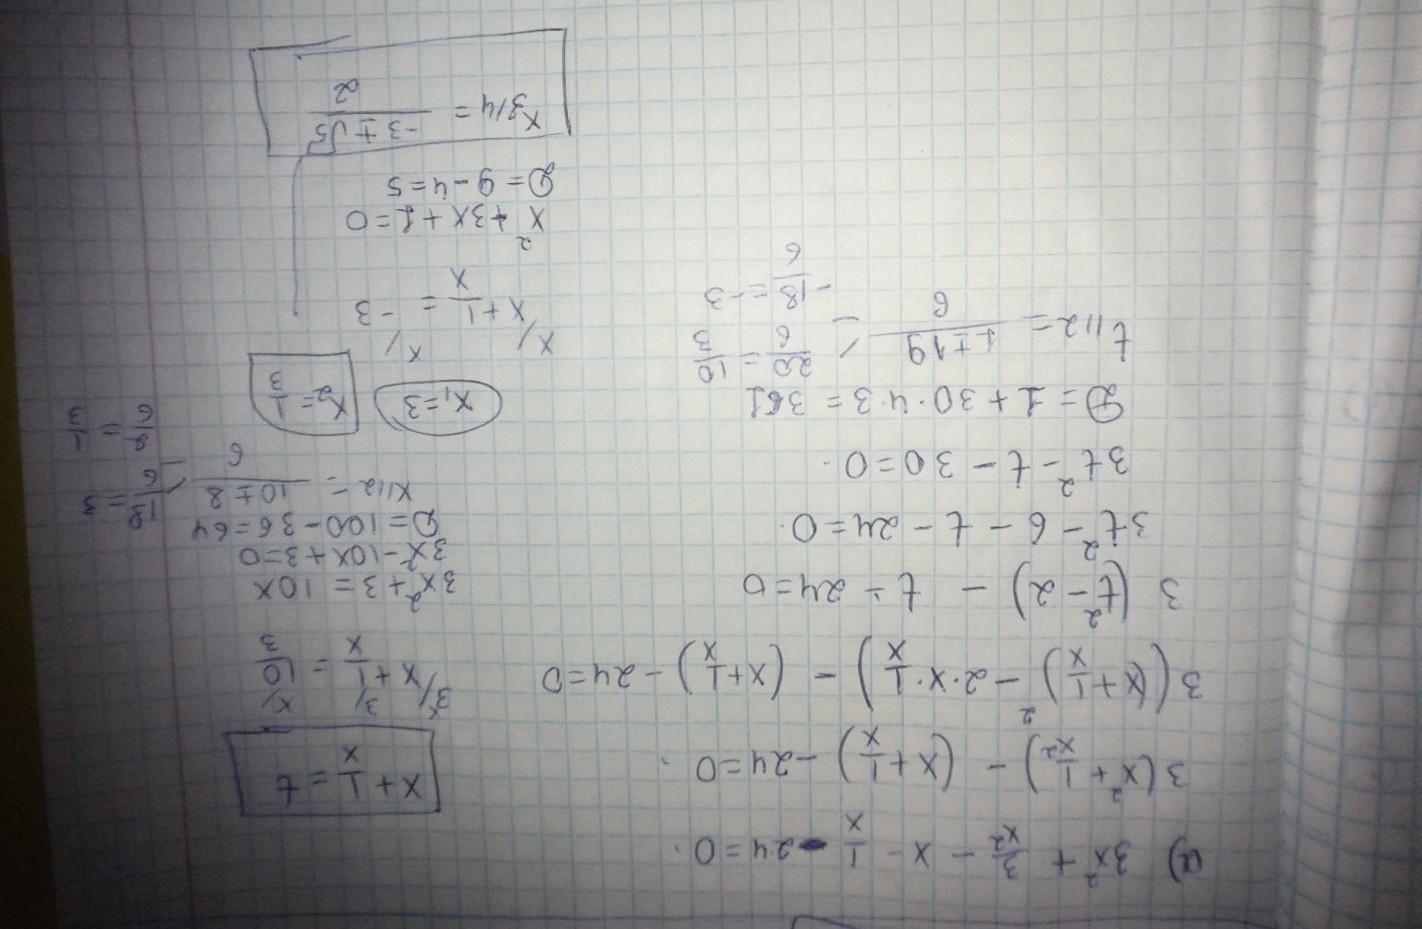 a) 3x² + 3/x² - x - 1/x - 24 = 0.
3(x² + 1/x²) - (x + 1/x) - 24 = 0.
3((x + 1/x)² - 2·x·1/x) - (x + 1/x) - 24 = 0
3(t² - 2) - t - 24 = 0
3t² - 6 - t - 24 = 0.
3t² - t - 30 = 0.
D = 1 + 30·4·3 = 361
t1,2 = (1 ± 19)/6
20/6 = 10/3
-18/6 = -3
x + 1/x = t
3x/ x + 3/ 1/x = x/ 10/3
3x² + 3 = 10x
3x² - 10x + 3 = 0
D = 100 - 36 = 64
x1,2 = (10 ± 8)/6
18/6 = 3
2/6 = 1/3
x₁ = 3 x₂ = 1/3
x/ x + 1/x = x/ -3
x² + 3x + 1 = 0
D = 9 - 4 = 5
x3,4 = (-3 ± √5)/2